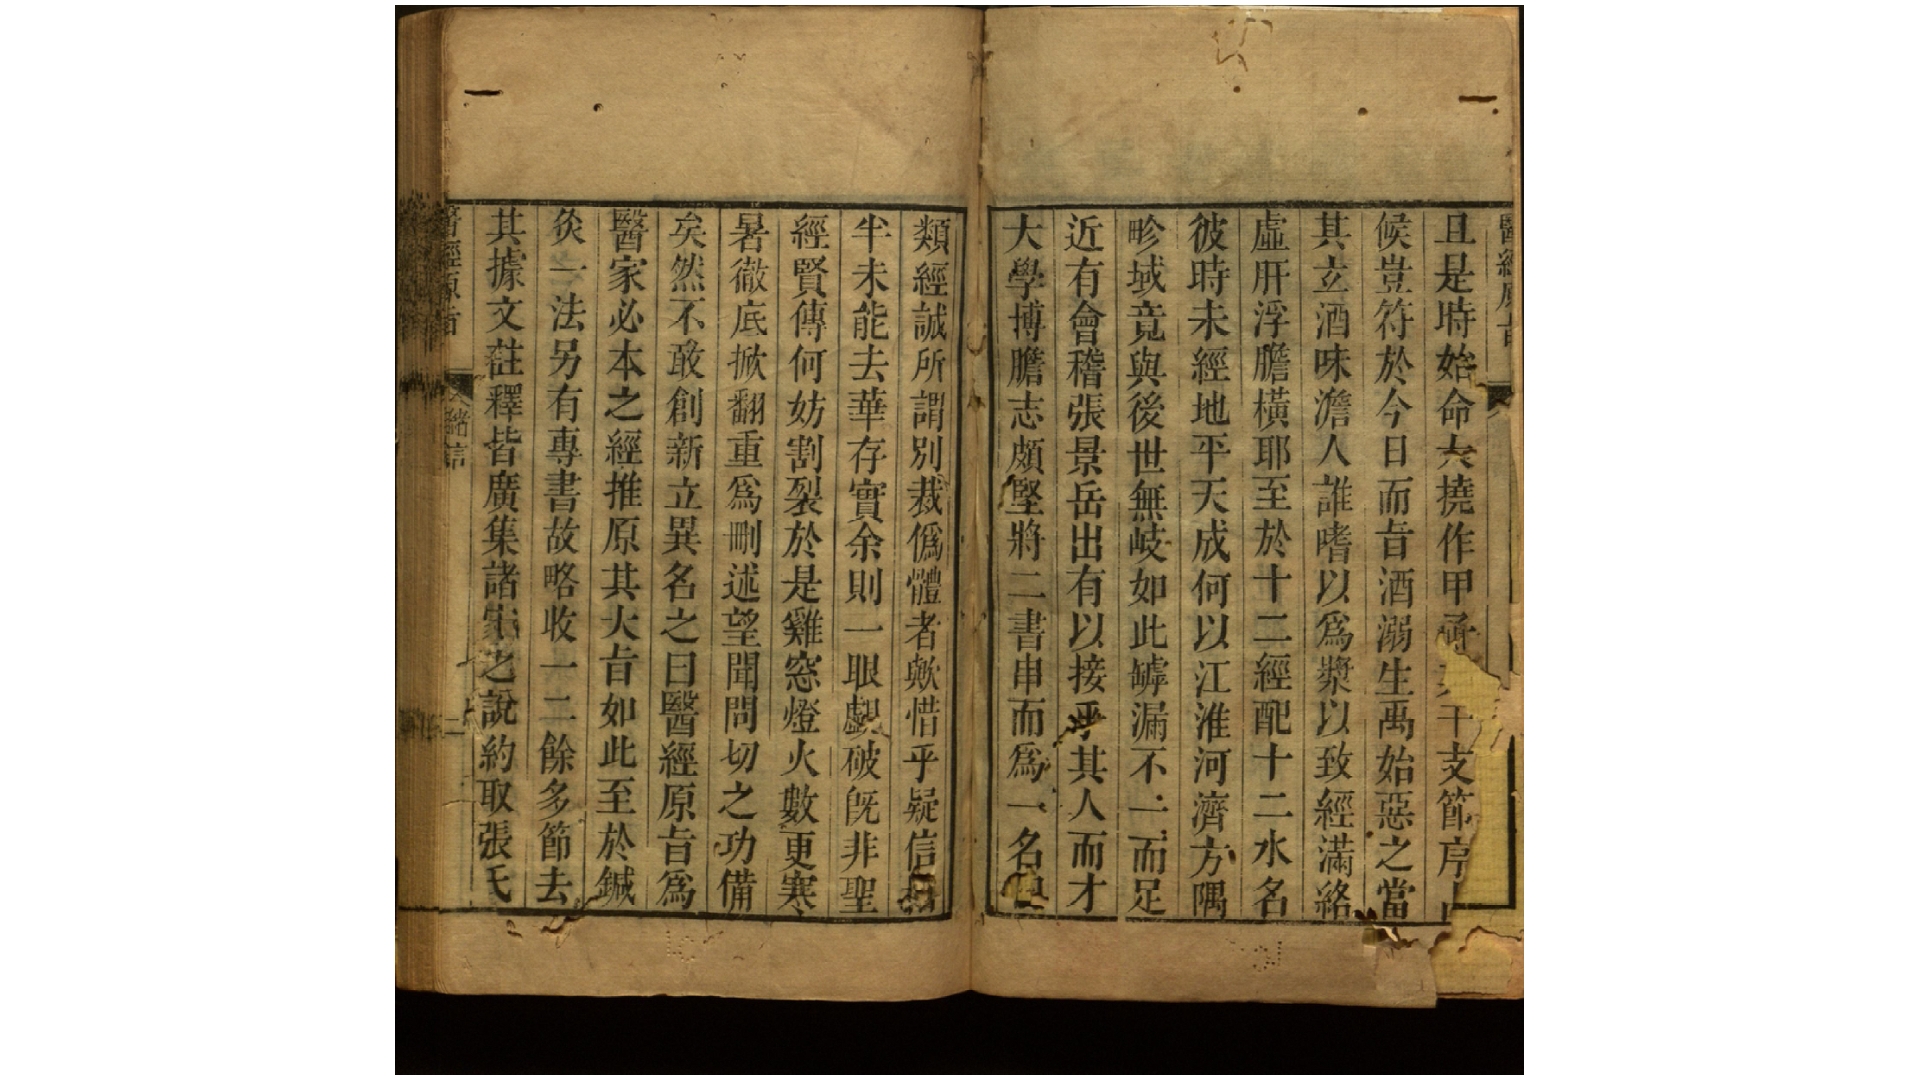 醫經原旨
且是時始命大撓作甲子其干支節序
候豈符於今日而旨酒溺生禹始惡之當
其立酒味澹人誰嗜以爲漿以致經滿絡
虛肝浮膽橫耶至於十二經配十二水名
彼時未經地平天成何以江淮河濟方隅
畛域竟與後世無岐如此罅漏不一而足
近有會稽張景岳出有以接乎其人而才
大學博膽志頗堅將二書串而爲一名曰
類經誠所謂別裁僞體者歟惜乎疑信相
半未能去華存實余則一眼覷破旣非聖
經賢傳何妨割裂於是雞窓燈火數更寒
暑徹底掀翻重爲刪述望聞問切之功備
矣然不敢創新立異名之曰醫經原旨爲
醫家必本之經推原其大旨如此至於鍼
灸一法另有專書故略收一二餘多節去
其據文註釋皆廣集諸家之說約取張氏
醫經原旨 緒言 二